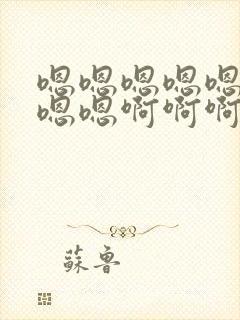 嗯嗯嗯嗯嗯
嗯嗯啊啊啊
蘇魯